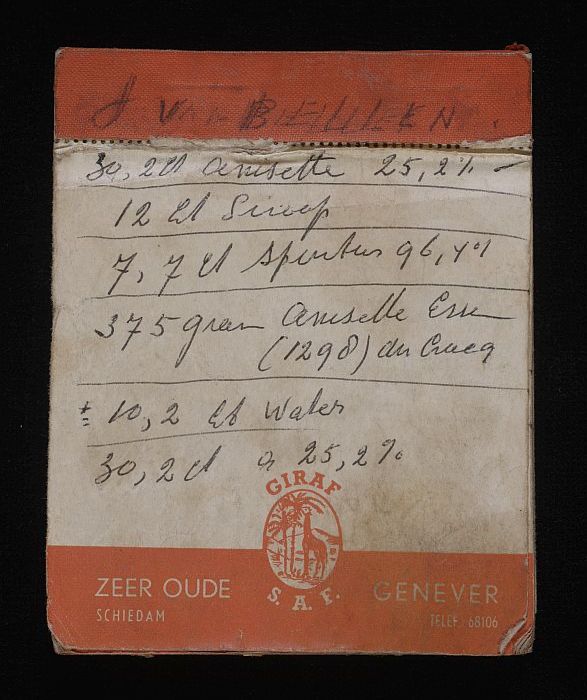 J VAN BEULEN.
30,2 lt Anisette 25,2% -
12 lt Siroop
7,7 lt Spiritus 96,4%
375 gram Anisette Essen
(1298) du Crocq
± 10,2 lt Water
30,2 lt a 25,2%
GIRAF
S.A.F.
ZEER OUDE GENEVER
SCHIEDAM TELEF. 68106